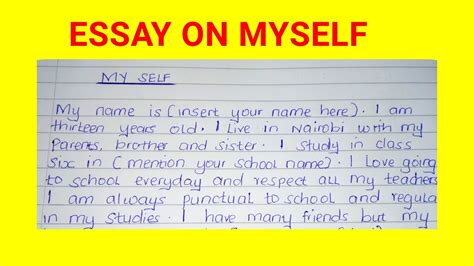 ESSAY ON MYSELF
MY SELF
My name is (insert your name here). I am
thirteen years old. I Live in Nairobi with my
Parents, brother and sister. I study in class
six in (mention your school name). I Love going
to school everyday and respect all my teachers
I am always punctual to school and regula
in my studies. I have many friends but my